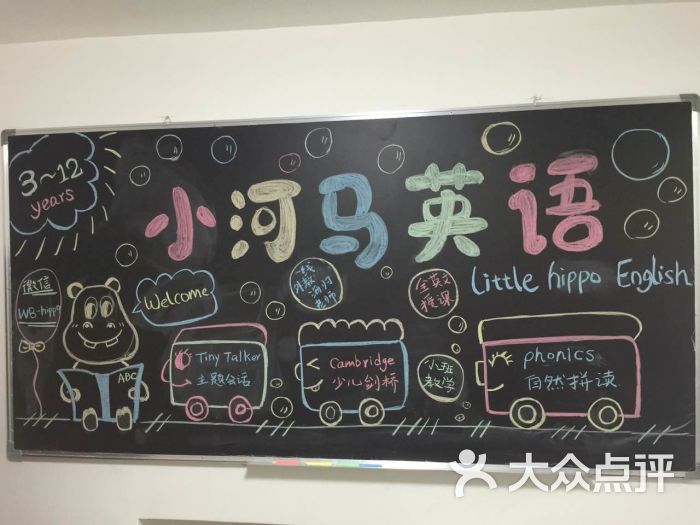 3~12
years
小河马英语
Little hippo English
微信
WB-hippo
Welcome
一线
外教
海归
老师
全英文
授课
Tiny Talker
主题会话
Cambridge
少儿剑桥
小班
教学
phonics
自然拼读
ABC
大众点评